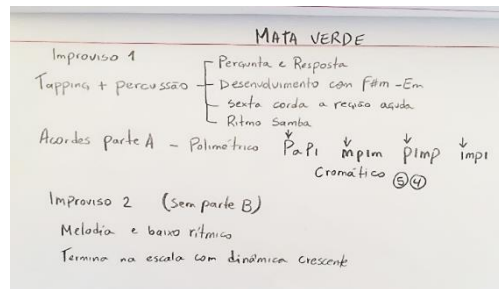 MATA VERDE
Improviso 1
Tapping + percussão
Pergunta e Resposta
Desenvolvimento con F#m - Em
Sexta corda a região aguda
Ritmo Samba
Acordes parte A - Polimétrico PaPi mpim pimp impi
Cromático ⑤④
Improviso 2 (sem parte B)
Melodia e baixo rítmico
Termina na escala com dinâmica crescente